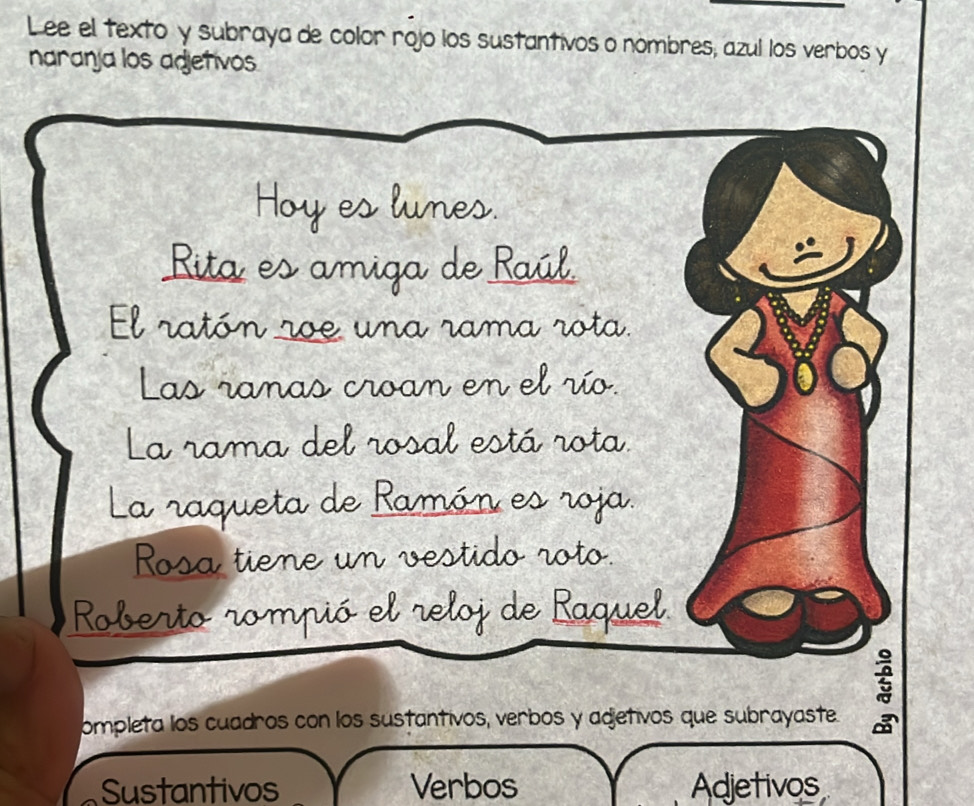 Lee el texto y subraya de color rojo los sustantivos o nombres, azul los verbos y
naranja los adjetivos
Hoy es lunes.
Rita es amiga de Raúl.
El ratón roe una rama rota.
Las ranas croan en el río.
La rama del rosal está rota.
La raqueta de Ramón es roja.
Rosa tiene un vestido roto.
Roberto rompió el reloj de Raquel.
By acrbio
ompleta los cuadros con los sustantivos, verbos y adjetivos que subrayaste.
Sustantivos Verbos Adjetivos